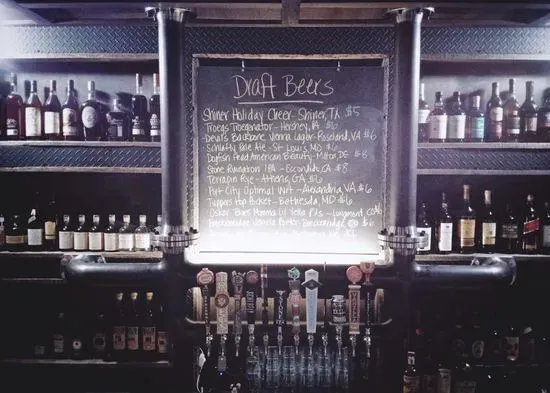 Draft Beers
Shiner Holiday Cheer - Shiner, TX $5
Troegs Troegenator - Hershey, PA $6
Devils Backbone Vienna Lager - Roseland, VA $6
Schlafly Pale Ale - St Louis, MO $6
Dogfish Head American Beauty - Milton, DE $8
Stone Ruination IPA - Escondido, CA $8
Terrapin Rye - Athens, GA $6
Port City Optimal Wit - Alexandria, VA $6
Tuppers Hop Pocket - Bethesda, MD $6
Oskar Blues Momma Lil Yella Pils - Longmont CO $6
Breckenridge Vanilla Porter - Breckenridge